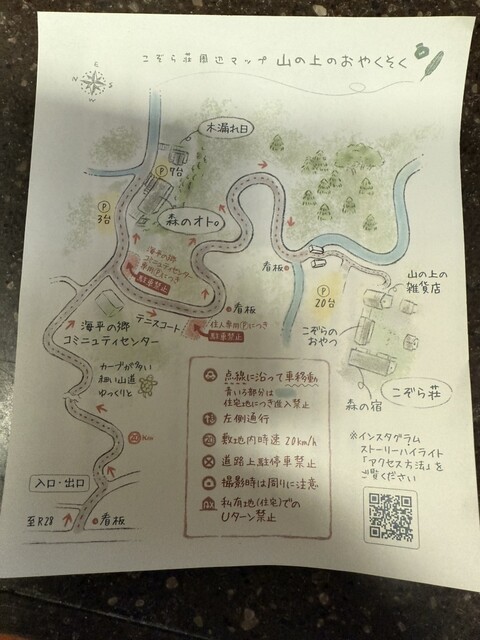 こぞら荘周辺マップ 山の上のおやくそく
N
W
E
S
木漏れ日
P 9台
P
3台
森のオト。
海平の郷
コミュニティセンター
専用Pにつき
駐車禁止
看板
看板
P
20台
山の上の
雑貨店
テニスコート
住人専用Pにつき
駐車禁止
海平の郷
コミュニティセンター
こぞらの
おやつ
こぞら荘
森の宿
カーブが多い
細い山道
ゆっくりと
20Km
入口・出口
至R28
看板
点線に沿って車移動
青いろ部分は
住宅地につき進入禁止
左側通行
20 敷地内時速20km/h
道路上駐停車禁止
撮影時は周りに注意
私有地(住宅)での
Uターン禁止
※インスタグラム
ストーリーハイライト
「アクセス方法」を
ご覧ください